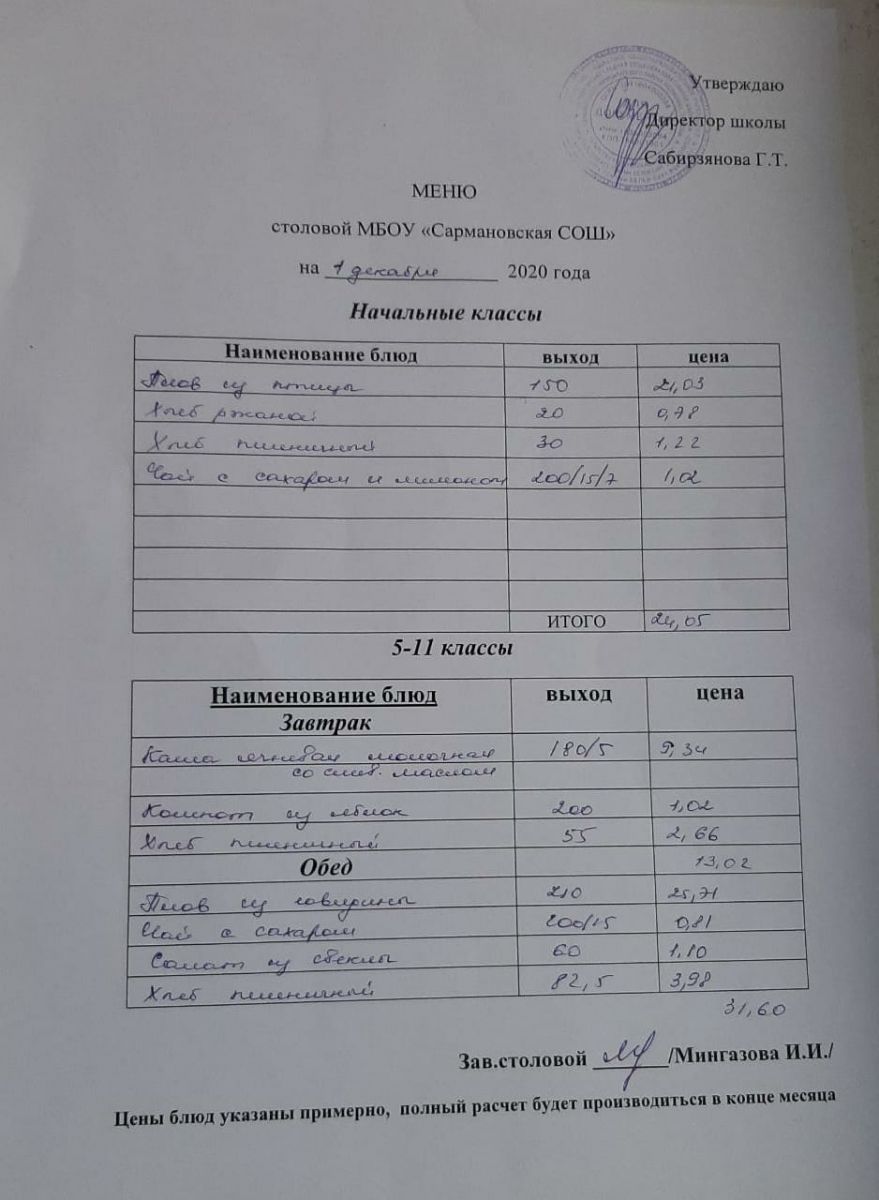 Утверждаю
Директор школы
Сабирзянова Г.Т.
МЕНЮ
столовой МБОУ «Сармановская СОШ»
на 1 декабря 2020 года
Начальные классы
Наименование блюд выход цена
Плов из птицы 150 21,03
Хлеб ржаной 20 0,78
Хлеб пшеничный 30 1,22
Чай с сахаром и лимоном 200/15/7 1,02
ИТОГО 24,05
5-11 классы
Наименование блюд выход цена
Завтрак
Каша ячневая молочная 180/5 9,34
со слив. маслом
Компот из яблок 200 1,02
Хлеб пшеничный 55 2,66
Обед 13,02
Плов из говядины 210 25,71
Чай с сахаром 200/15 0,81
Салат из свеклы 60 1.10
Хлеб пшеничный 82,5 3,98
31,60
Зав.столовой /Мингазова И.И./
Цены блюд указаны примерно, полный расчет будет производиться в конце месяца